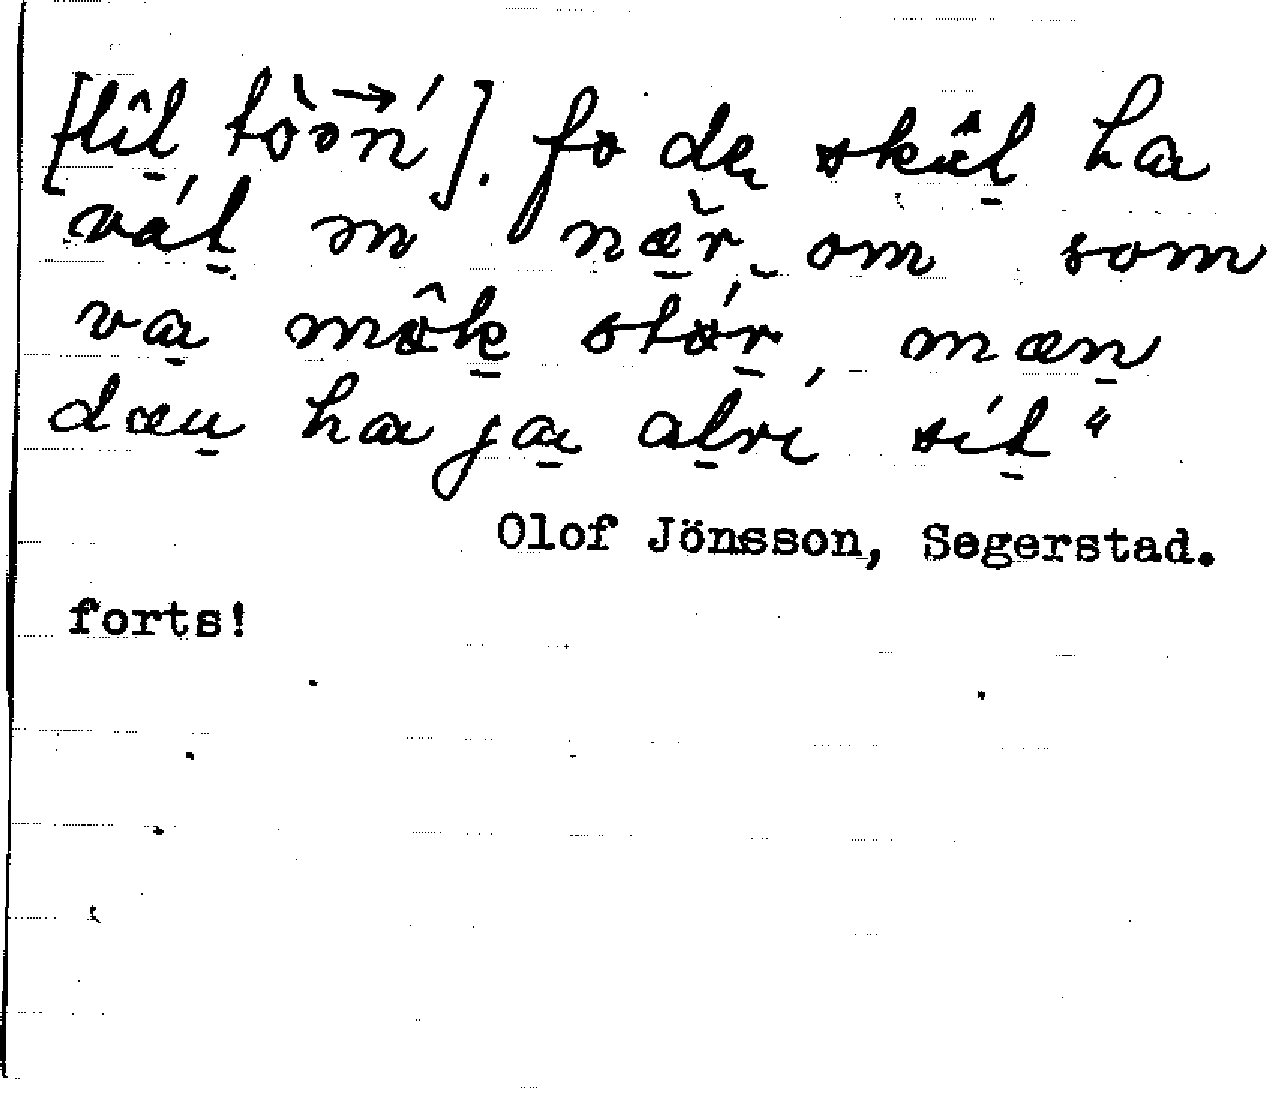 [lîl̠ tòo→ń]. fo dæ skâl̠ ha
vát̠ m næ̠̀r om som
va̠ môk̠ stór̠, mæn̠
dæn̠ ha ja̠ al̠rí sít̠"
Olof Jönsson, Segerstad.
forts!